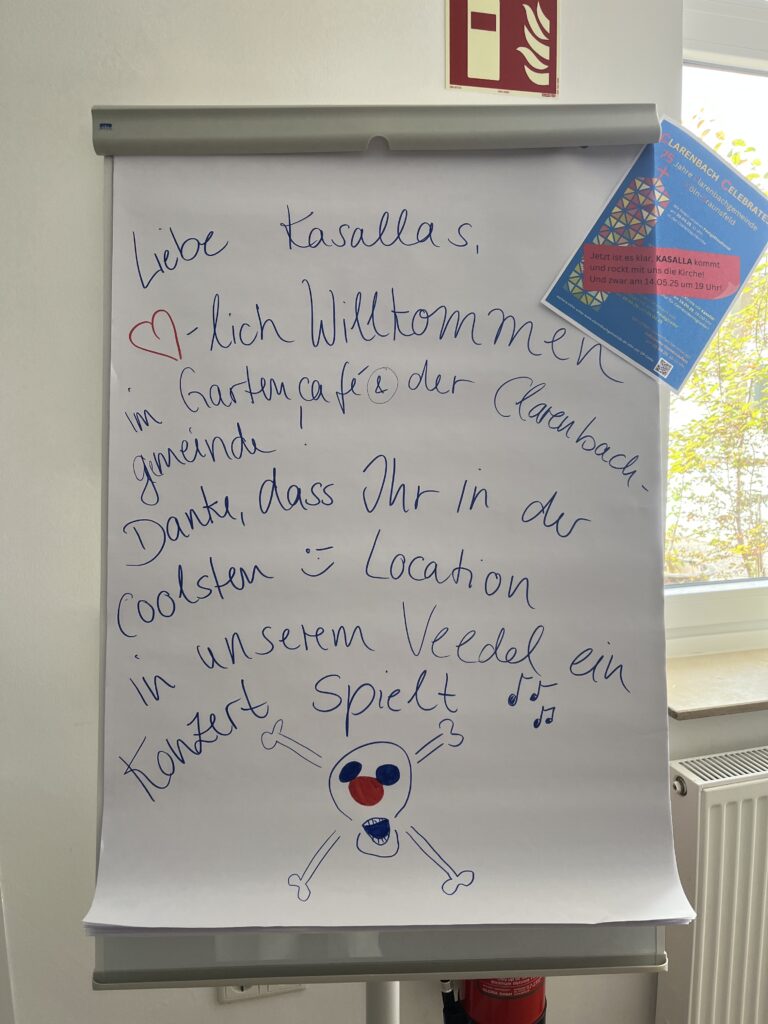 Liebe Kasallas,
♡-lich Willkommen
im Gartencafé & der Clarenbach-
gemeinde!
Danke, dass Ihr in der
coolsten :-) Location
in unserem Veedel ein
Konzert spielt
CLARENBACH CELEBRATES
75 Jahre Clarenbachgemeinde
Köln-Braunsfeld
Jetzt ist es klar, KASALLA kommt
und rockt mit uns die Kirche!
Und zwar am 14.05.25 um 19 Uhr!